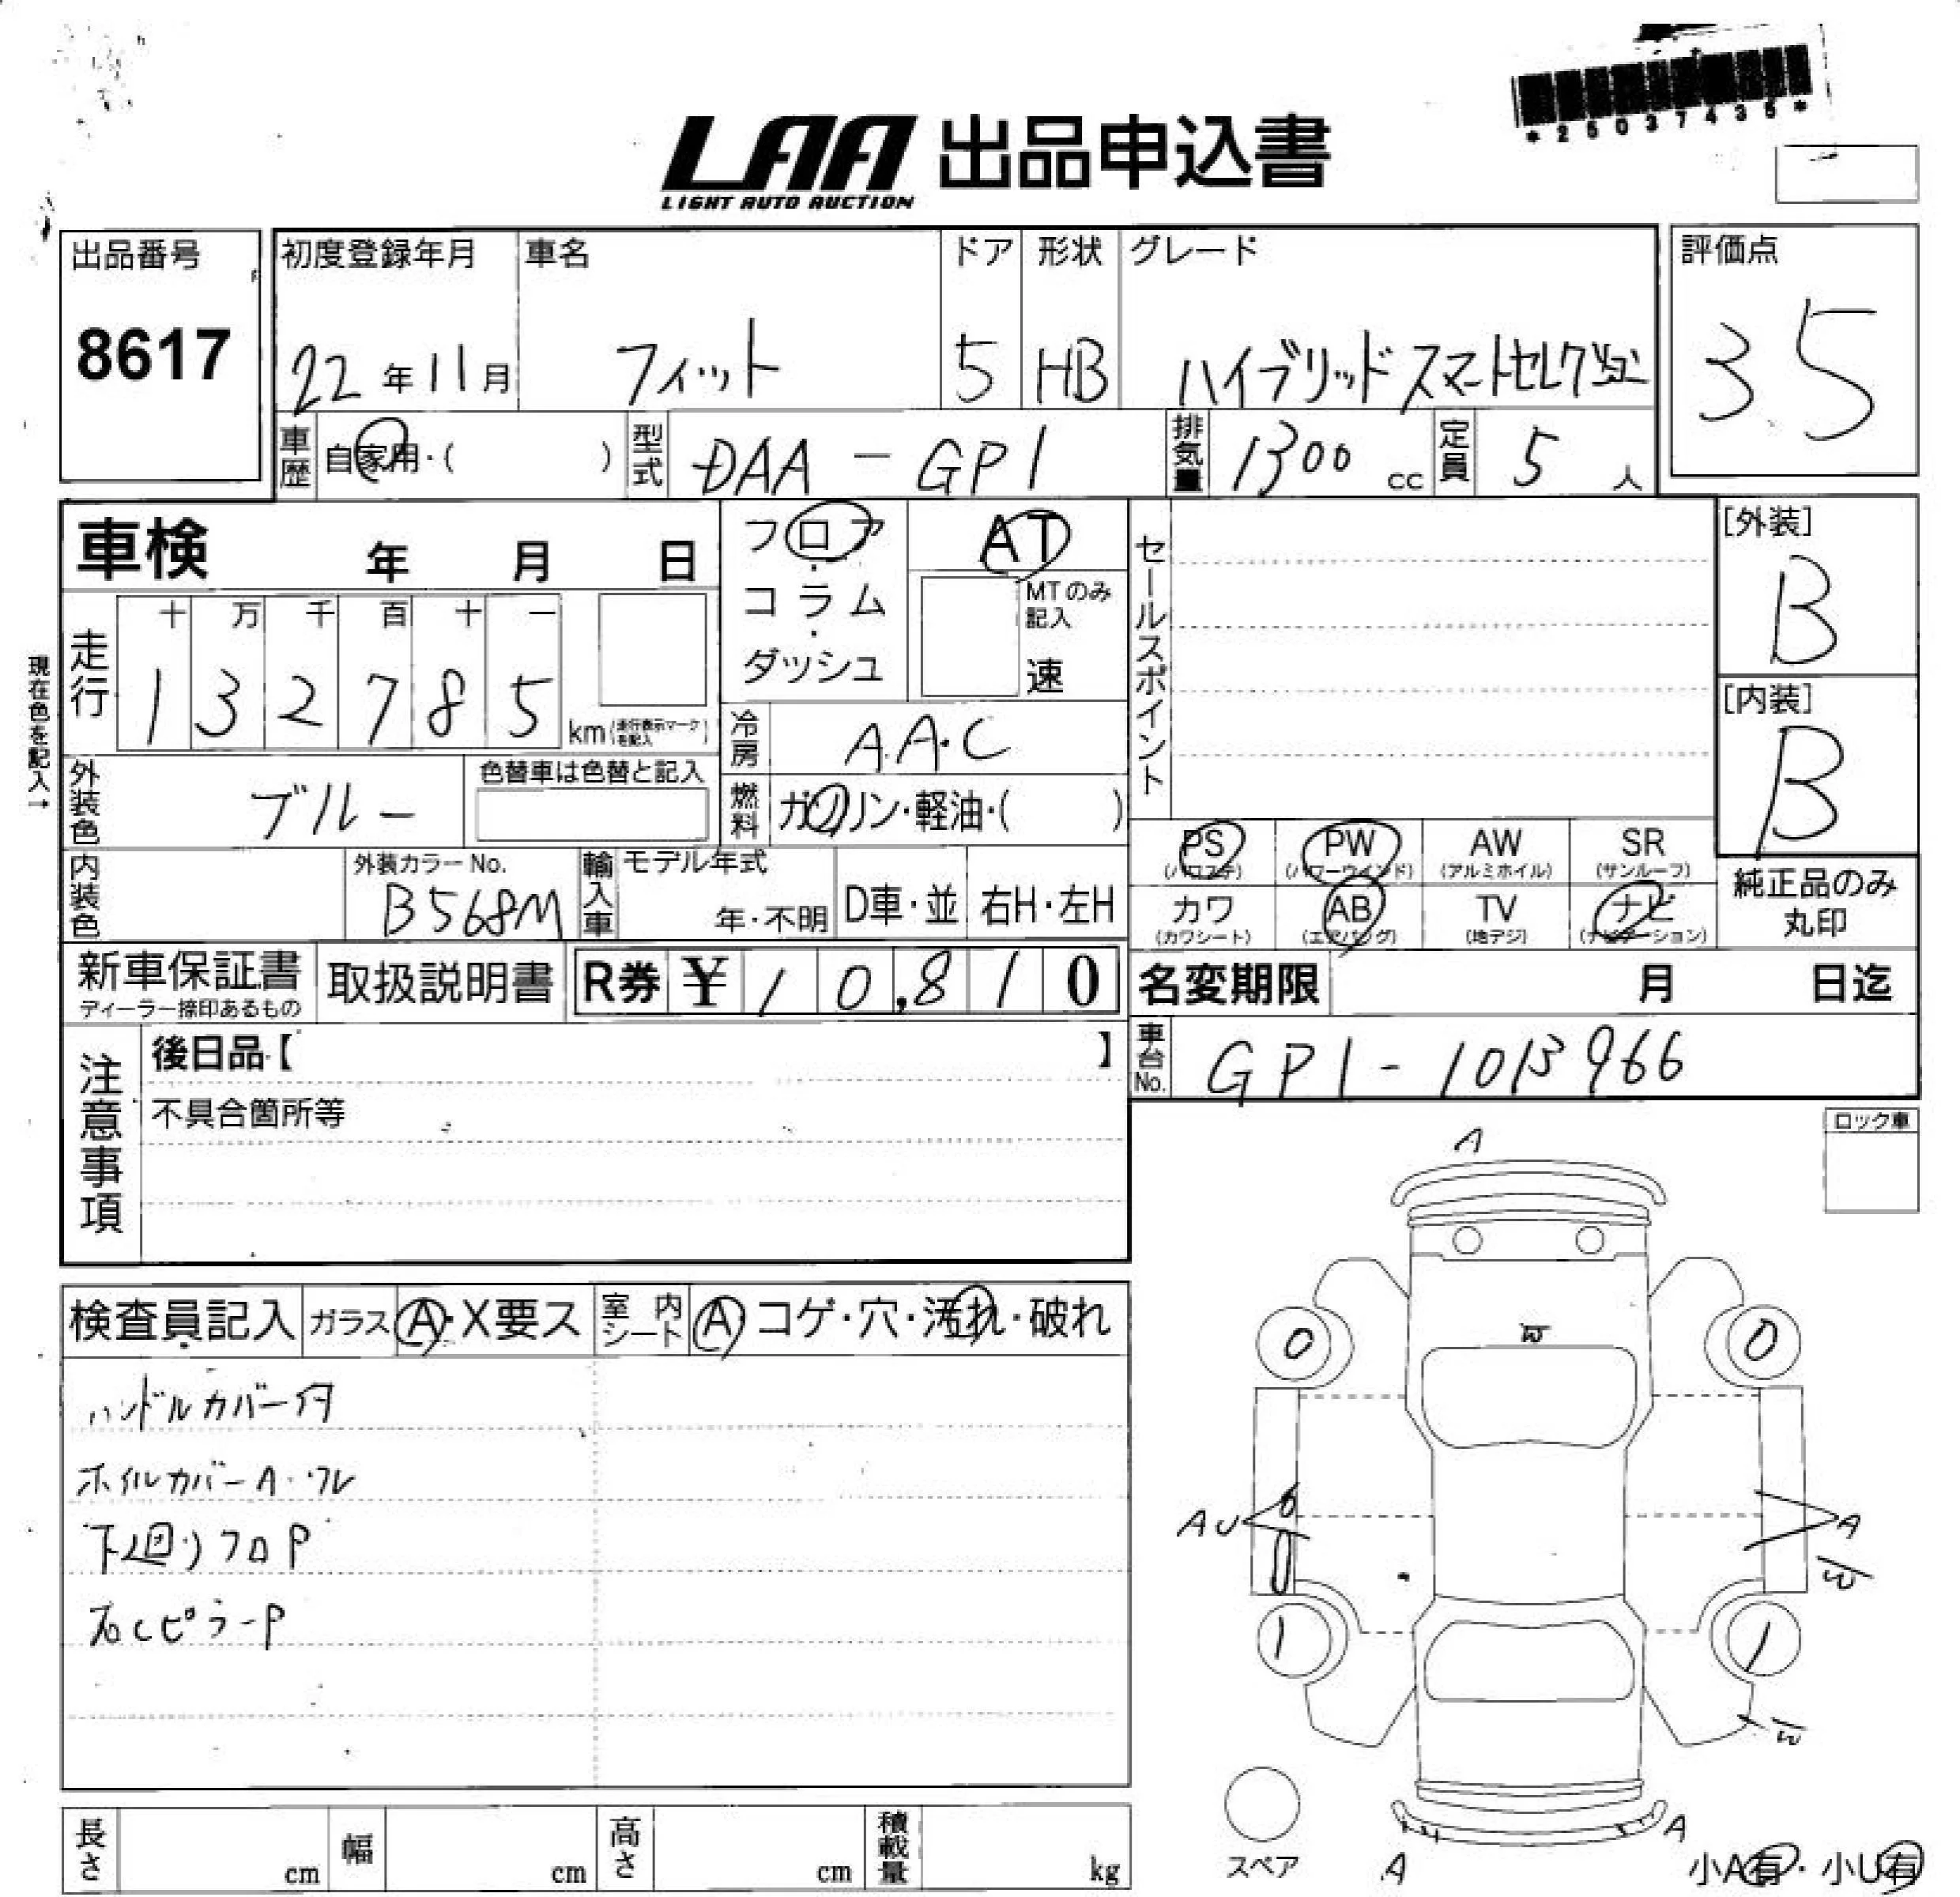 *25037435*
LAA 出品申込書
LIGHT AUTO AUCTION
出品番号 8617
初度登録年月 22年11月
車名 フィット
ドア 5
形状 HB
グレード ハイブリッド スマートセレクション
評価点 3.5
車歴 自家用・( )
型式 DAA-GP1
排気量 1300 cc
定員 5人
車検 年 月 日
フロア・コラム・ダッシュ
AT
MTのみ記入
速
セールスポイント
[外装] B
[内装] B
現在色を記入→
走行 十万千百十一
132785 km(走行表示マークを記入)
冷房 A.A.C
外装色 ブルー
色替車は色替と記入
燃料 ガソリン・軽油・( )
内装色
外装カラーNo. B568M
輸入車 モデル年式 年・不明
D車・並
右H・左H
PS (パワステ)
PW (パワーウインド)
AW (アルミホイル)
SR (サンルーフ)
カワ (カワシート)
AB (エアバッグ)
TV (地デジ)
ナビ (ナビゲーション)
純正品のみ丸印
新車保証書 ディーラー捺印あるもの
取扱説明書
R券 ¥10,810
名変期限 月 日迄
車台No. GP1-1013966
注意事項
後日品【 】
不具合箇所等
ロック車
検査員記入
ガラス A・X要ス
室内シート A コゲ・穴・汚れ・破れ
ハンドルカバー付
ホイルカバーA・ワレ
下廻りフロP
右CピラーP
A
W
0 0
AU
A
W
1 1
W
A
A
スペア
小A有・小U有
長さ cm
幅 cm
高さ cm
積載量 kg